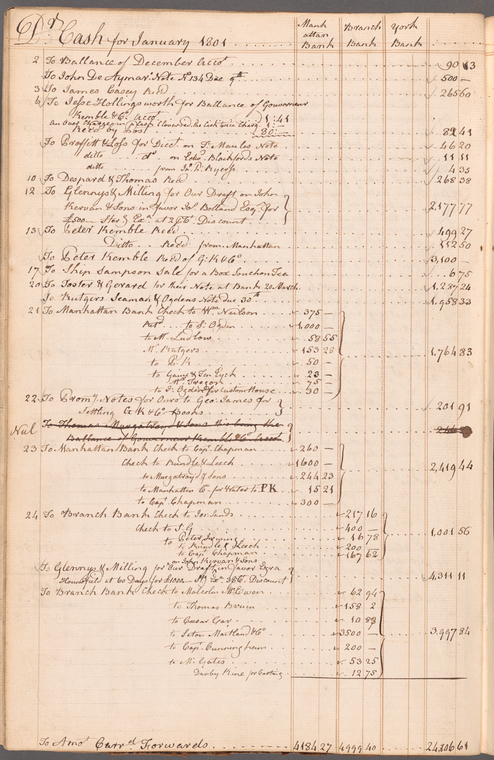 Dr. Cash for January 1801
Manhattan Bank
Branch Bank
York Bank
2 To Ballance of December Acco.t 90 13
To John De Aymar Note No 134 Due 9th 500 —
3 To James Casey Rec'd 26560
6 To Jesse Hollingsworth for Ballance of Gouverneur
Kemble & Co. Acco.t 1:41
Rec'd by Post 80: — 8241
To Proffitt & Loss for Disc.t on Note 4620
ditto d.o on Blachfords Note 11 11
ditto from Ja.s R. Rycroft 455
10 To Despard & Thomas Rec'd 268 38
12 To Glennys & Milling for Our Draft on John
Kirvan & Sons in favor Jno. Bolland Esq. for
£500 — Discount 2177 77
13 To Peter Kemble Rec'd 499 27
Ditto Rec'd from Manhattan 11250
To Peter Kemble Rec'd of G: K & Co. 3,100 —
17 To Ship Sampson Sale for a Box Souchon Tea 6 75
20 To Foster & Gerard for their Note at Bank 20 March 1,287 24
To Rutgers Seaman & Ogdens Note due 30th 1,958 33
21 To Manhattan Bank Check to Wm. Neilson 375 —
to T. Ogden 1,000 —
to M. Ludlow 58 55
M. Rutgers 153 28
to P. K 50 —
to Gains & Ten Eyck 23 —
75 —
to T. Ogden for Custom House 30 —
1,764 83
22 To Prom.y Notes for Ours to Geo: James for
Settling G: K & Co. Books 201 91
Nul To Thomas Murgatroyd & Sons this being the
Ballance of Gouverneur Kemble & Co.
23 To Manhattan Bank Check to Cap.t Chapman 260 —
Check to Rundle & Leech 1600 —
to Murgatroyd & Sons 244 23
to Manhattan Co. for Water to P K 15 21
to Cap.t Chapman 300 —
2,419 44
24 To Branch Bank Check to Jon. Sands 217 16
Check to J. G 400 —
to Peter Irving 16 78
to Rundle & Leech 200 —
to Cap.t Chapman 167 62
1,001 56
To Glennys & Milling for Our Draft on John Kirwan & Sons in favor Ezra
at 60 Days for £1000 Discount 4,311 11
To Branch Bank Check to Malcolm McEwen 62 94
to Thomas Bruen 158 2
to Cæsar Gar 10 88
to Seton Maitland & Co. 3500 —
to Cap.t Cunningham 200 —
to Mr. Gates 53 25
Darby Rine for Carting 12 75
3,997 84
To Amo.t Carr.d Forwards 4184 27 4999 40 24306 61